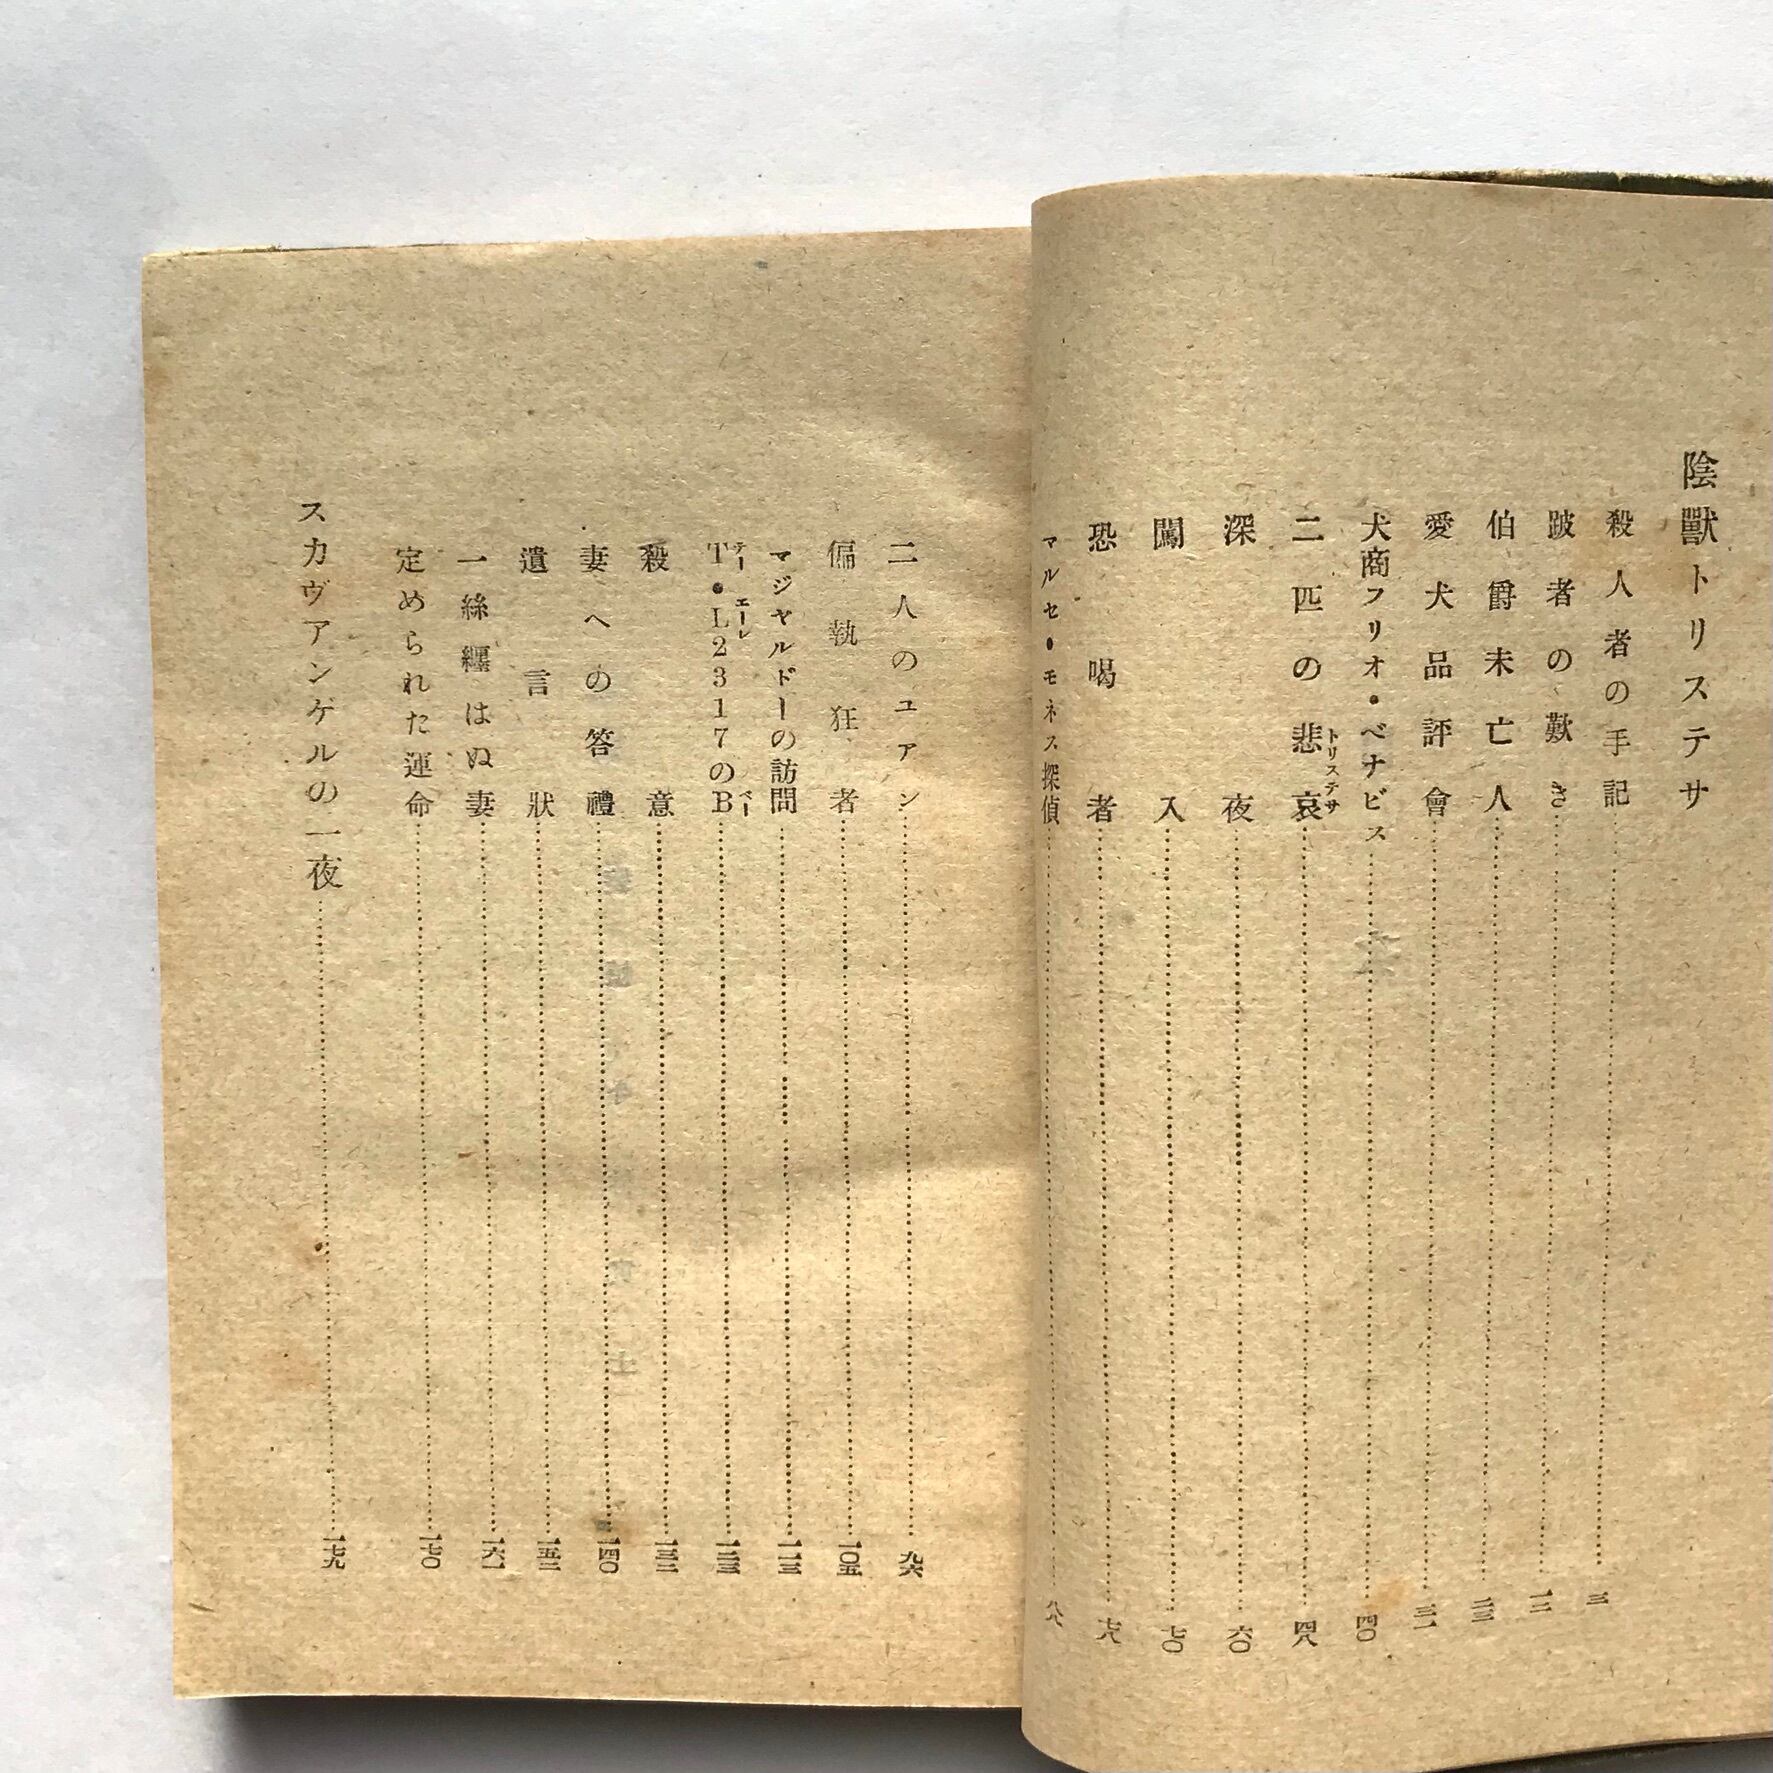 陰獸トリステサ
殺人者の手記……三
跛者の歎き……一二
伯爵未亡人……二三
愛犬品評會……三一
犬商フリオ・ベナビス……四〇
二匹の悲哀トリステサ……四八
深夜……六〇
闖入……七〇
恐喝者……七八
マルセ・モネス探偵……八八
二人のユアン……九六
偏執狂者……一〇五
マジャルドーの訪問……一一三
T・L2317のBテーエーレベー……一二三
殺意……一三二
妻への答禮……一四〇
遺言狀……一五二
一絲纒はぬ妻……一六一
定められた運命……一七〇
スカヴアンゲルの一夜……一七九